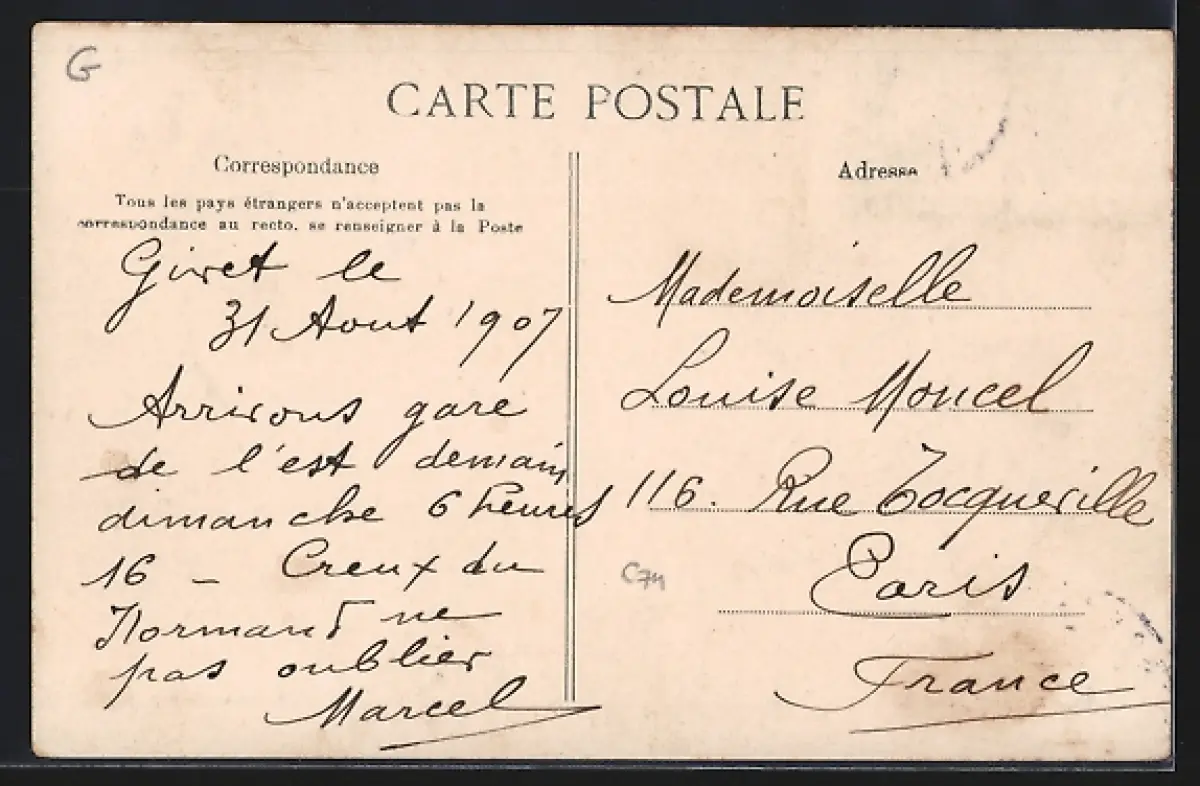 G
CARTE POSTALE
Correspondance
Tous les pays étrangers n'acceptent pas la
correspondance au recto, se renseigner à la Poste
Givet le
31 Aout 1907
Arrivons gare
de l'est demain
dimanche 6 heures
16 - Creux du
Normand ne
pas oublier
Marcel
Adresse
Mademoiselle
Louise Moncel
116. Rue Tocqueville
Paris
France